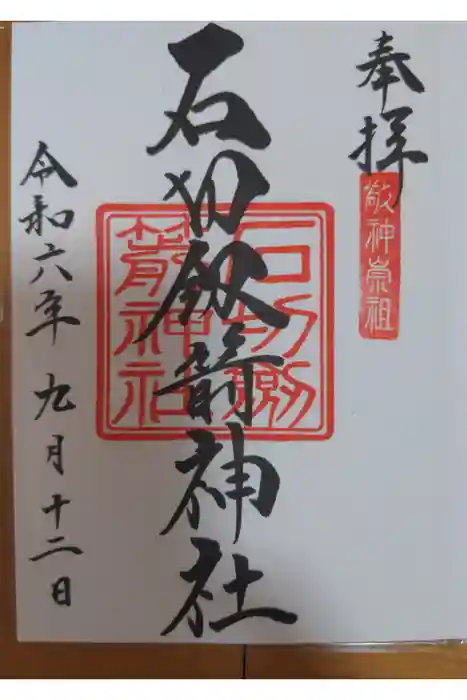 奉拝
敬神崇祖
石切劔箭神社
石切劔
箭神社
令和六年 九月十二日